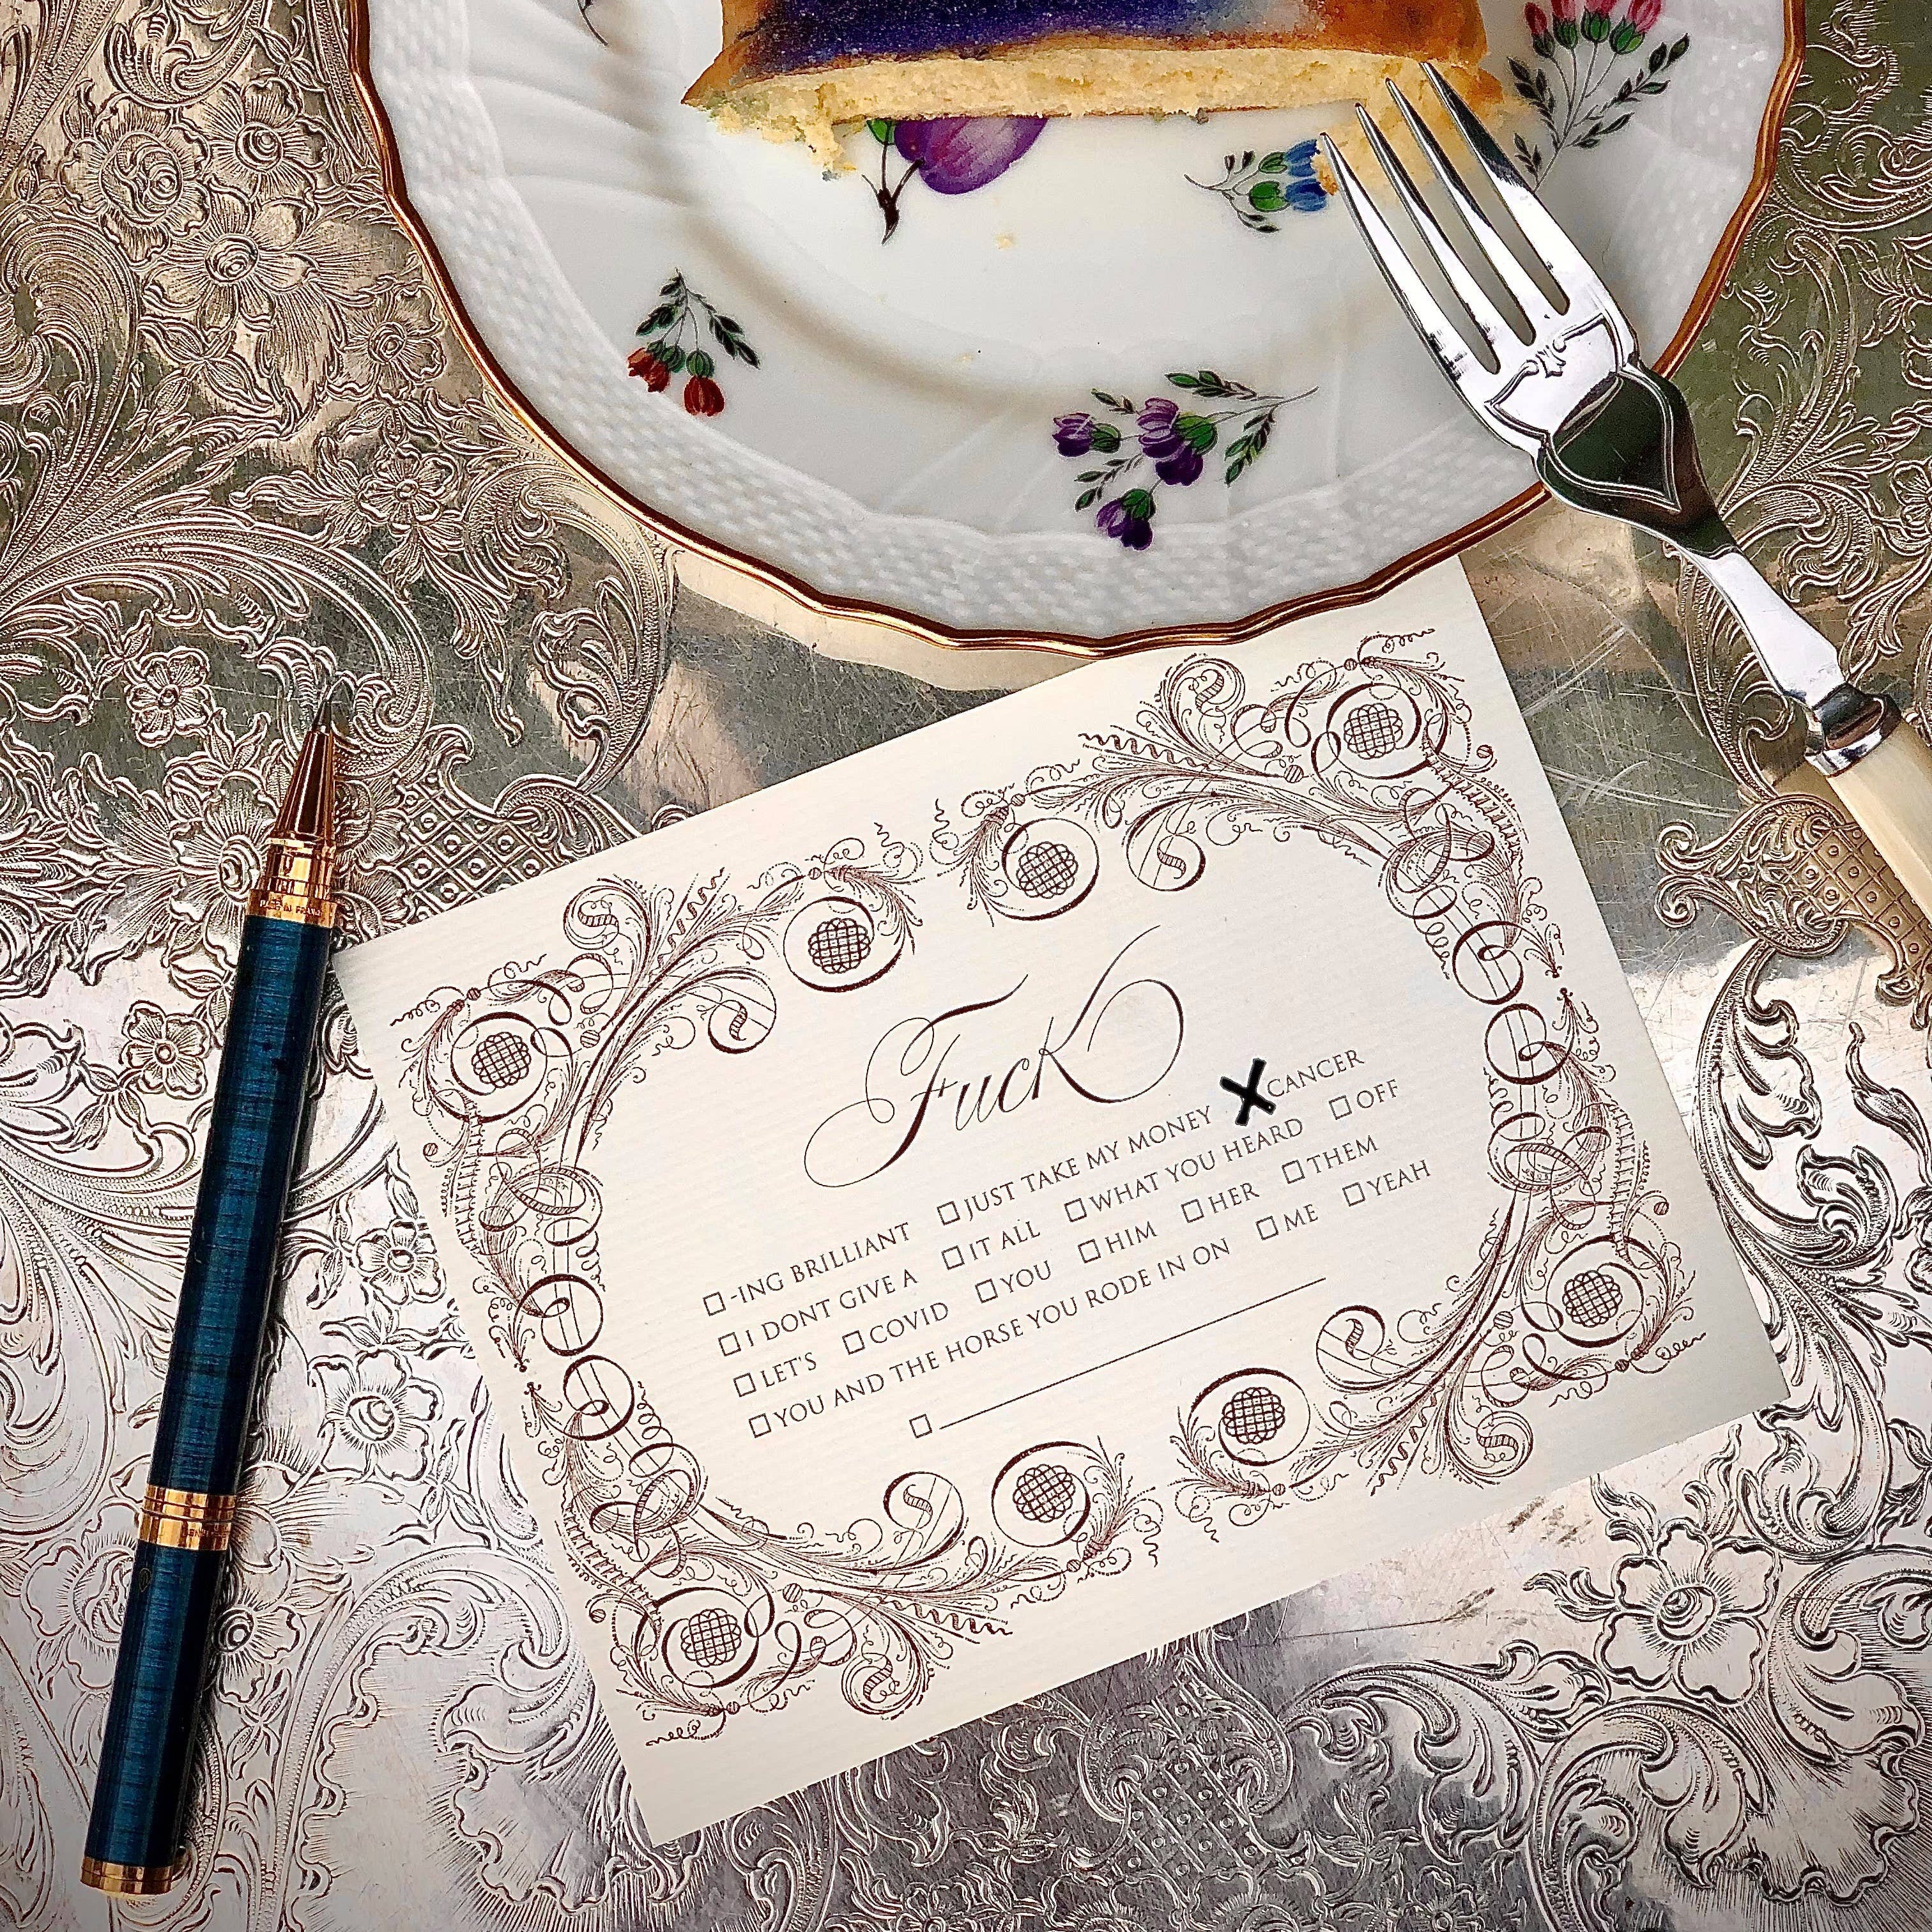 Fuck
☐-ING BRILLIANT ☐JUST TAKE MY MONEY XCANCER
☐I DONT GIVE A ☐IT ALL ☐WHAT YOU HEARD ☐OFF
☐LET'S ☐COVID ☐YOU ☐HIM ☐HER ☐THEM
☐YOU AND THE HORSE YOU RODE IN ON ☐ME ☐YEAH
☐____________________